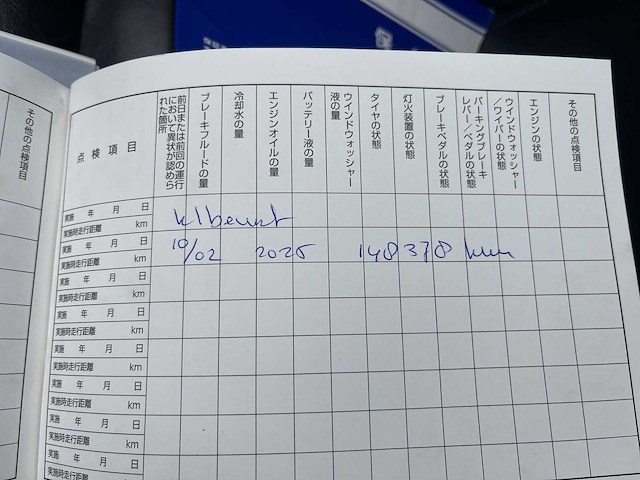 その他の点検項目
点検項目
前日または前回の運行
において異状が認めら
れた箇所
ブレーキフルードの量
冷却水の量
エンジンオイルの量
バッテリー液の量
ウインドウォッシャー
液の量
タイヤの状態
灯火装置の状態
ブレーキペダルの状態
パーキングブレーキ
レバー／ペダルの状態
ウインドウォッシャー
／ワイパーの状態
エンジンの状態
その他の点検項目
実施 年 月 日
実施時走行距離 km
実施 年 月 日
実施時走行距離 km
10/02 2025 148378 km
実施 年 月 日
実施時走行距離 km
実施 年 月 日
実施時走行距離 km
実施 年 月 日
実施時走行距離 km
実施 年 月 日
実施時走行距離 km
実施 年 月 日
実施時走行距離 km
実施 年 月 日
実施時走行距離